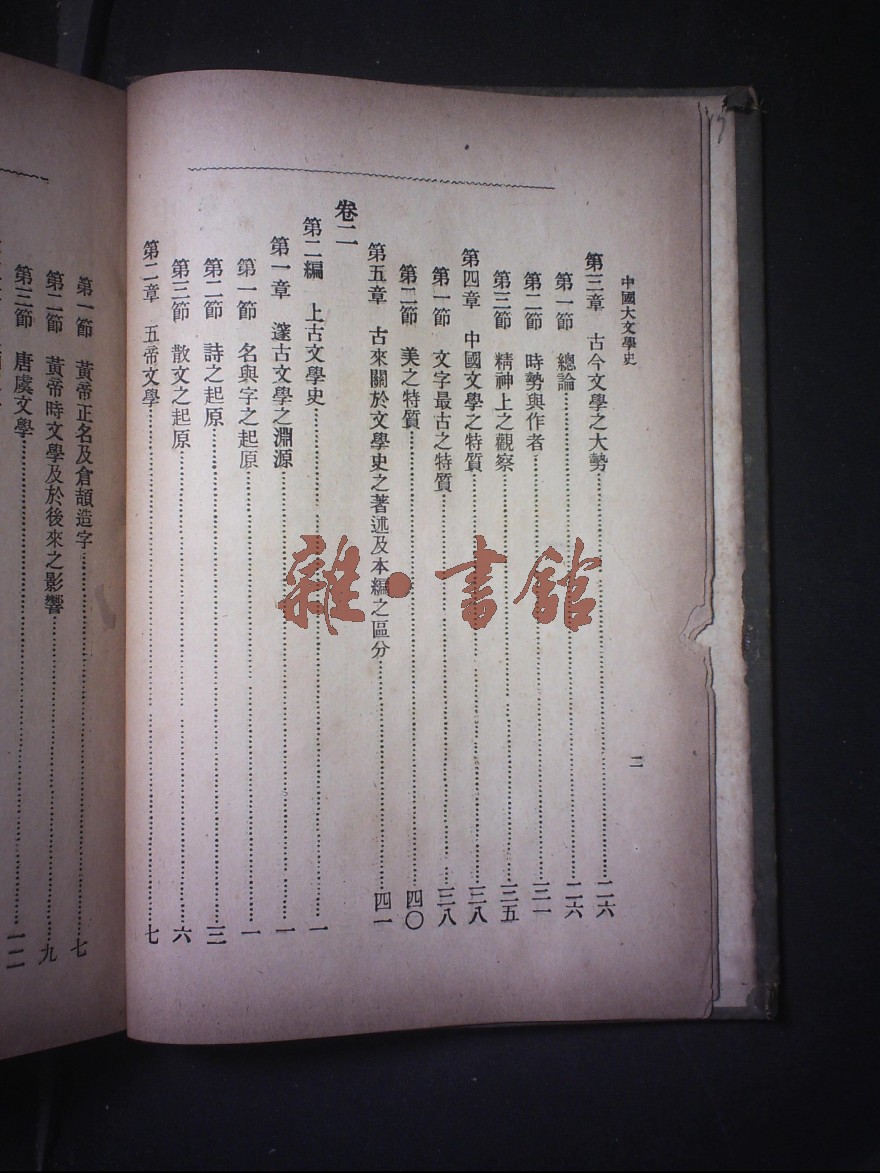 中國大文學史
二
第三章 古今文學之大勢 二六
第一節 總論 二六
第二節 時勢與作者 三一
第三節 精神上之觀察 三五
第四章 中國文學之特質 三八
第一節 文字最古之特質 三八
第二節 美之特質 四〇
第五章 古來關於文學史之著述及本編之區分 四一
卷二
第二編 上古文學史 一
第一章 邃古文學之淵源 一
第一節 名與字之起原 一
第二節 詩之起原 三
第三節 散文之起原 六
第二章 五帝文學 七
第一節 黃帝正名及倉頡造字 七
第二節 黃帝時文學及於後來之影響 九
第三節 唐虞文學 一二
雜·書館